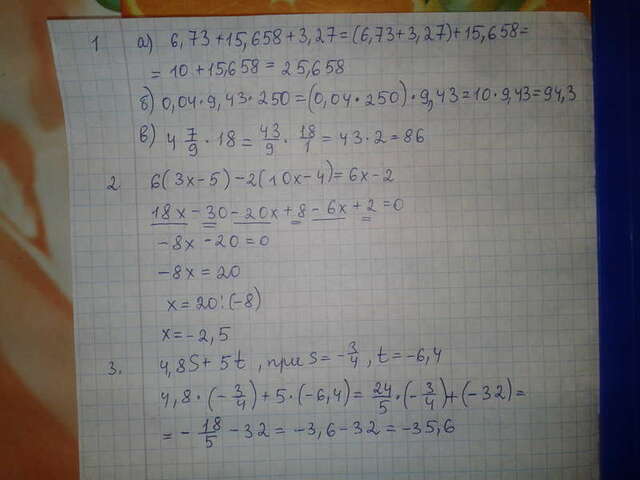 1 а) 6,73+15,658+3,27=(6,73+3,27)+15,658=
= 10+15,658=25,658
б) 0,04·9,43·250=(0,04·250)·9,43=10·9,43=94,3
в) 4 7/9 · 18 = 43/9 · 18/1 = 43·2=86
2. 6(3x-5)-2(10x-4)=6x-2
18x-30-20x+8-6x+2=0
-8x-20=0
-8x=20
x=20:(-8)
x=-2,5
3. 4,8S+5t, при S=-3/4, t=-6,4
4,8·(-3/4)+5·(-6,4)=24/5·(-3/4)+(-32)=
=-18/5-32=-3,6-32=-35,6